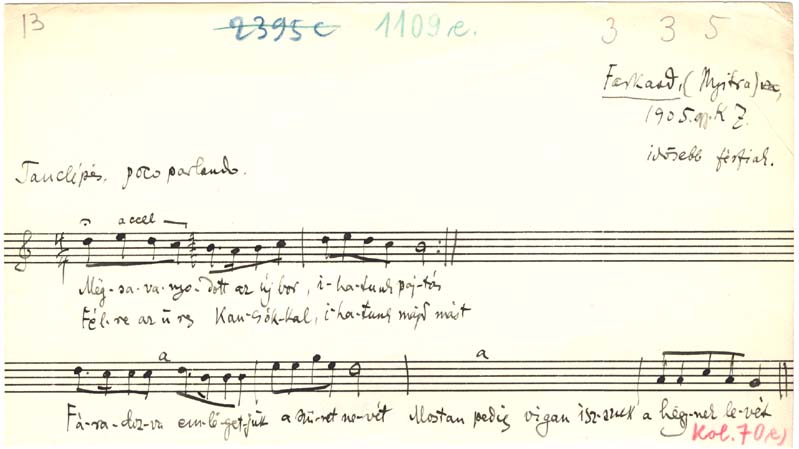 13 2395c 1109e. 3 3 5
Farkasd, (Nyitra)
1905. gy. K Z.
idősebb férfiak.
Tánclépés. poco parlando.
accel
Még-sa-va-nyo-dott az új bor, i-ha-tunk paj-tás
Fél-re az ü res Kan-csók-kal, i-ha-tunk majd mást
a a
Fá-ra-doz-va em-lé-get-jük a szü-ret ne-vét Mostan pedig vigan isz-szuk a hegy-nek le-vét
Kol. 70e)